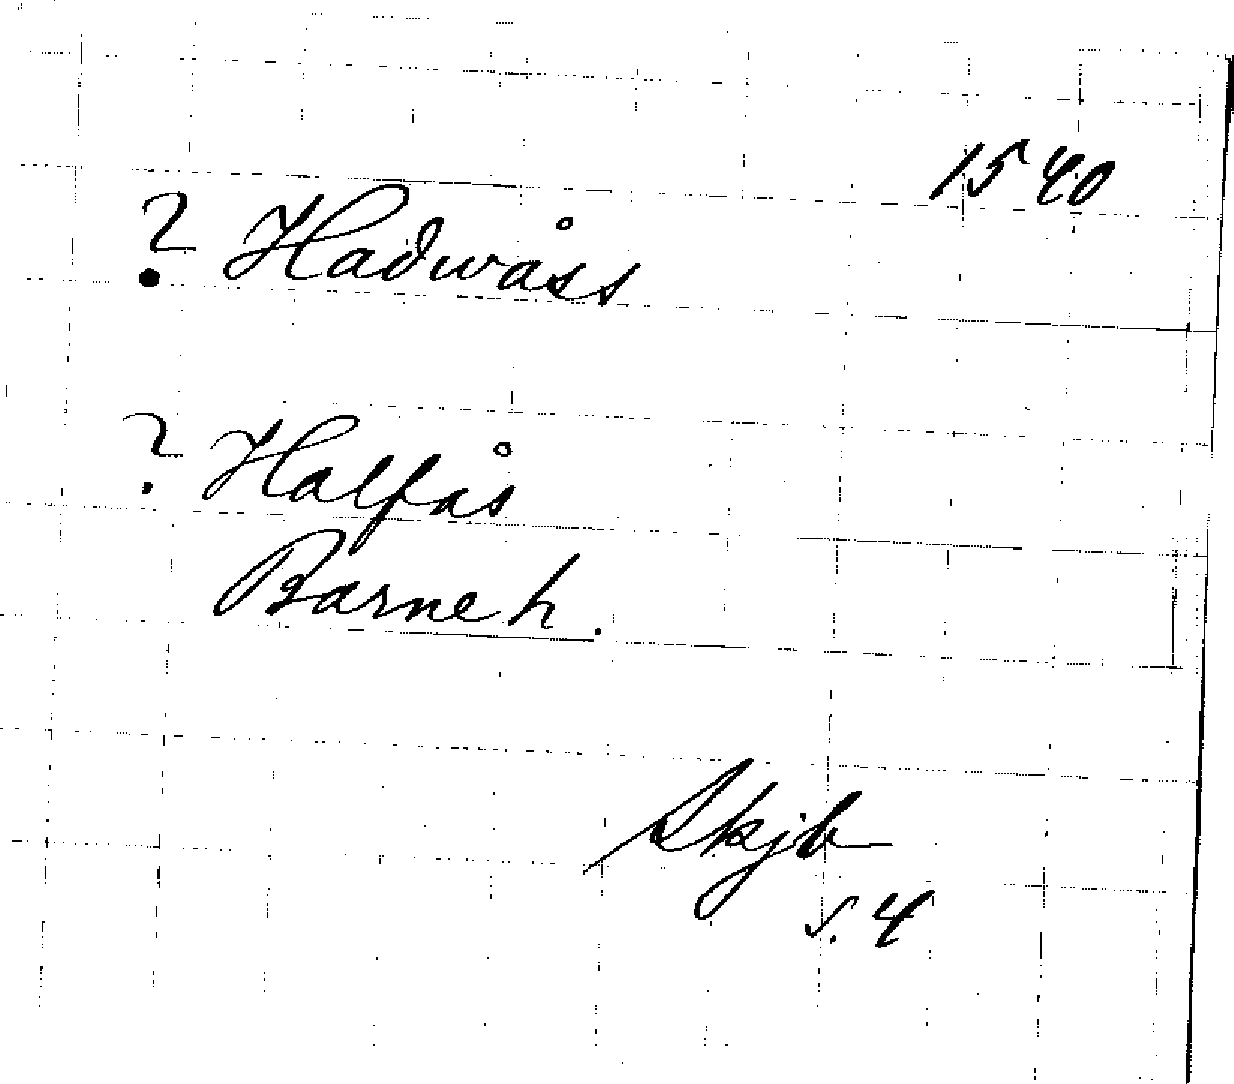 1540
? Hadwåss
? Halfås
Barneh.
Skjb
s. 4